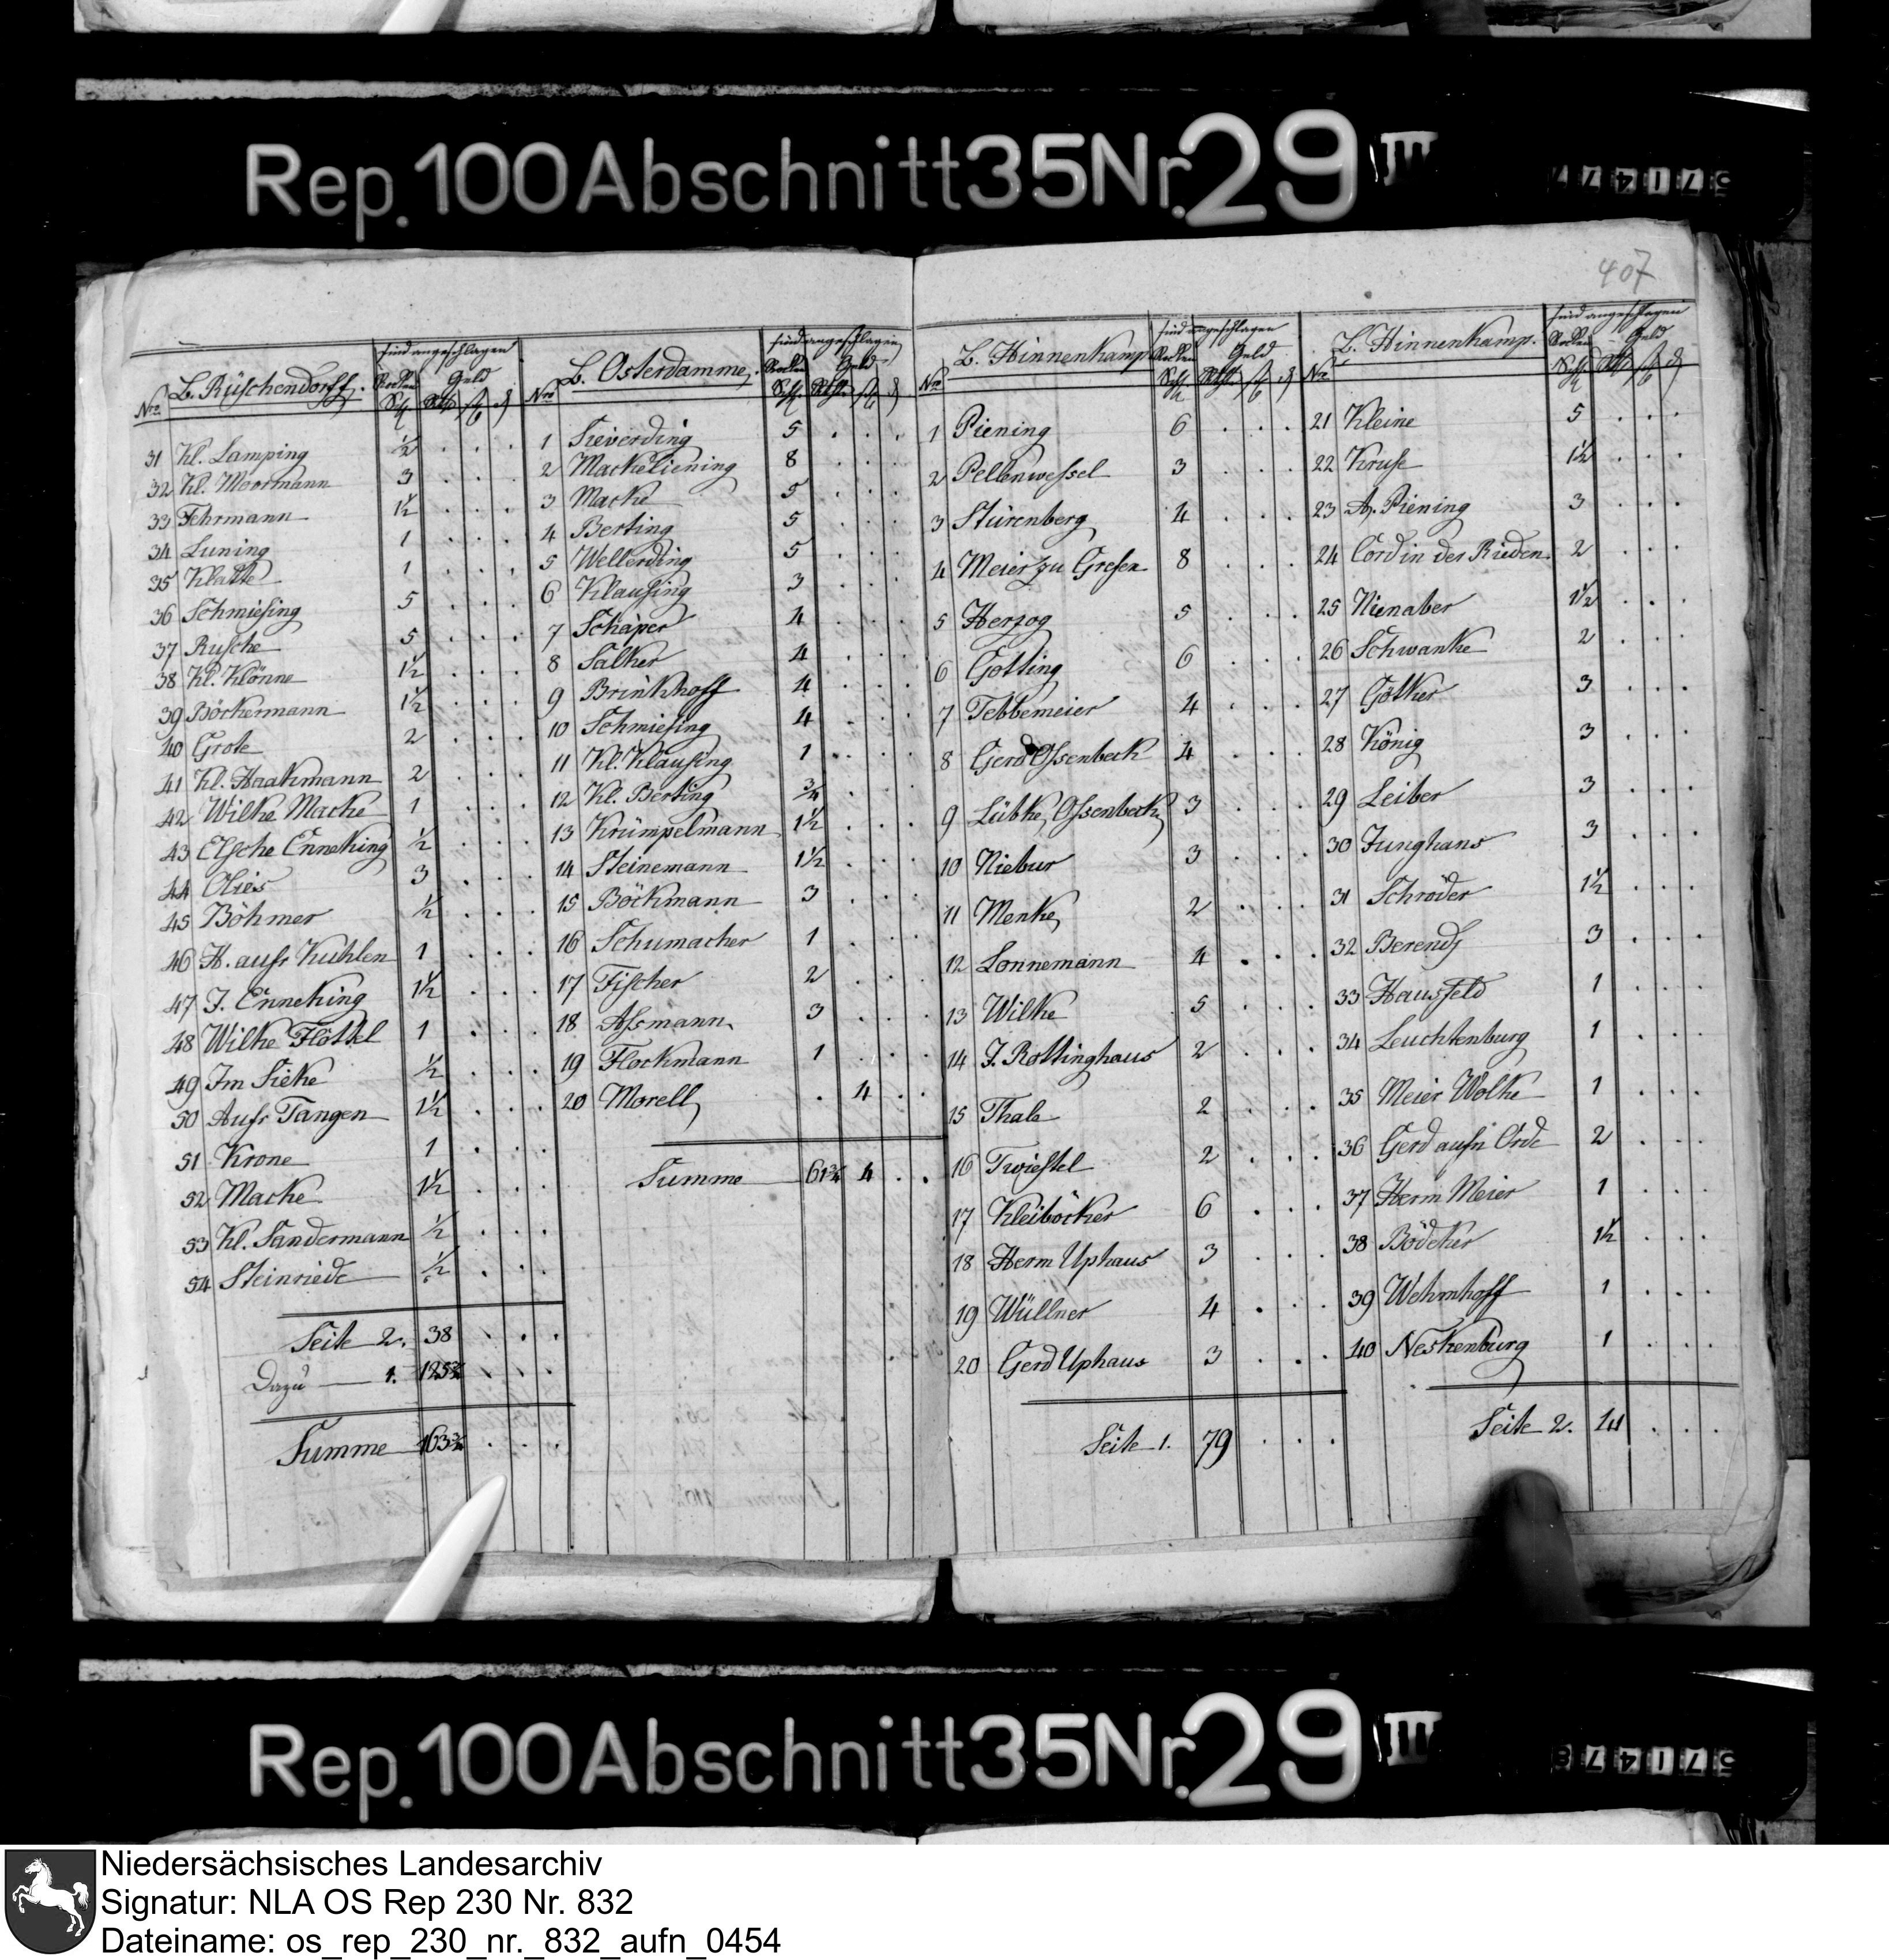 Rep. 100 Abschnitt 35 Nr. 29 III
407
Nro. B. Rüschendorff. sind angeschlagen Rocken Geld
31 Kl. Lamping ½ . . .
32 Kl. Moormann 3 . . .
33 Fehrmann 1½ . . .
34 Luning 1 . . .
35 Klatte 1 . . .
36 Schmiesing 5 . . .
37 Rusche 5 . . .
38 Kl. Klönne 1½ . . .
39 Böckermann 1½ . . .
40 Grote 2 . . .
41 Kl. Haakmann 2 . . .
42 Wilke Macke 1 . . .
43 Elsche Enneking ½ . . .
44 Olies 3 . . .
45 Böhmer ½ . . .
46 H. aufr Kuhlen 1 . . .
47 J. Enneking 1½ . . .
48 Wilke Flottel 1 . . .
49 Im Sieke ½ . . .
50 Aufr Tangen 1½ . . .
51 Krone 1 . . .
52 Macke 1½ . . .
53 Kl. Sandermann ½ . . .
54 Steinriede ½ . . .
Seite 2. 38 . . .
Dazu 1. 125¾ . . .
Summe 163¾ . . .
Nro B. Osterdamme. sind angeschlagen Rocken Geld
1 Sieverding 5 . . .
2 Mackeliening 8 . . .
3 Macke 5 . . .
4 Berting 5 . . .
5 Wellerding 5 . . .
6 Klausing 3 . . .
7 Schäper 4 . . .
8 Salker 4 . . .
9 Brinkhoff 4 . . .
10 Schmiesing 4 . . .
11 Kl. Klausing 1 . . .
12 Kl. Berting ¾ . . .
13 Krümpelmann 1½ . . .
14 Steinemann 1½ . . .
15 Böckmann 3 . . .
16 Schumacher 1 . . .
17 Fischer 2 . . .
18 Assmann 3 . . .
19 Flockmann 1 . . .
20 Morell . 4 . .
Summe 61¾ 4 . .
Nro B. Hinnenkamp sind angeschlagen Rocken Geld
1 Piening 6 . . .
2 Pellenwessel 3 . . .
3 Stürenberg 4 . . .
4 Meier zu Gresen 8 . . .
5 Herzog 5 . . .
6 Gotting 6 . . .
7 Tebbemeier 4 . . .
8 Gerd Ossenbeck 4 . . .
9 Lübke Ossenbeck 3 . . .
10 Niebur 3 . . .
11 Menke 2 . . .
12 Lonnemann 4 . . .
13 Wilke 5 . . .
14 J. Rottinghaus 2 . . .
15 Thale 2 . . .
16 Twiestel 2 . . .
17 Kleiböcker 6 . . .
18 Herm Uphaus 3 . . .
19 Wüllner 4 . . .
20 Gerd Uphaus 3 . . .
Seite 1. 79 . . .
Nro B. Hinnenkamp. sind angeschlagen Rocken Geld
21 Kleine 5 . . .
22 Kruse 1½ . . .
23 A. Piening 3 . . .
24 Cord in der Rieden 2 . . .
25 Nienaber 1½ . . .
26 Schwanke 2 . . .
27 Götker 3 . . .
28 König 3 . . .
29 Leiber 3 . . .
30 Junghans 3 . . .
31 Schröder 1½ . . .
32 Berends 3 . . .
33 Hausfeld 1 . . .
34 Leuchtenburg 1 . . .
35 Meier Wolke 1 . . .
36 Gerd aufn Orde 2 . . .
37 Herm Meier 1 . . .
38 Bödeker 1½ . . .
39 Wehmhoff 1 . . .
40 Neskenburg 1 . . .
Seite 2. 41 . . .
Rep. 100 Abschnitt 35 Nr. 29 III
Niedersächsisches Landesarchiv
Signatur: NLA OS Rep 230 Nr. 832
Dateiname: os_rep_230_nr._832_aufn_0454